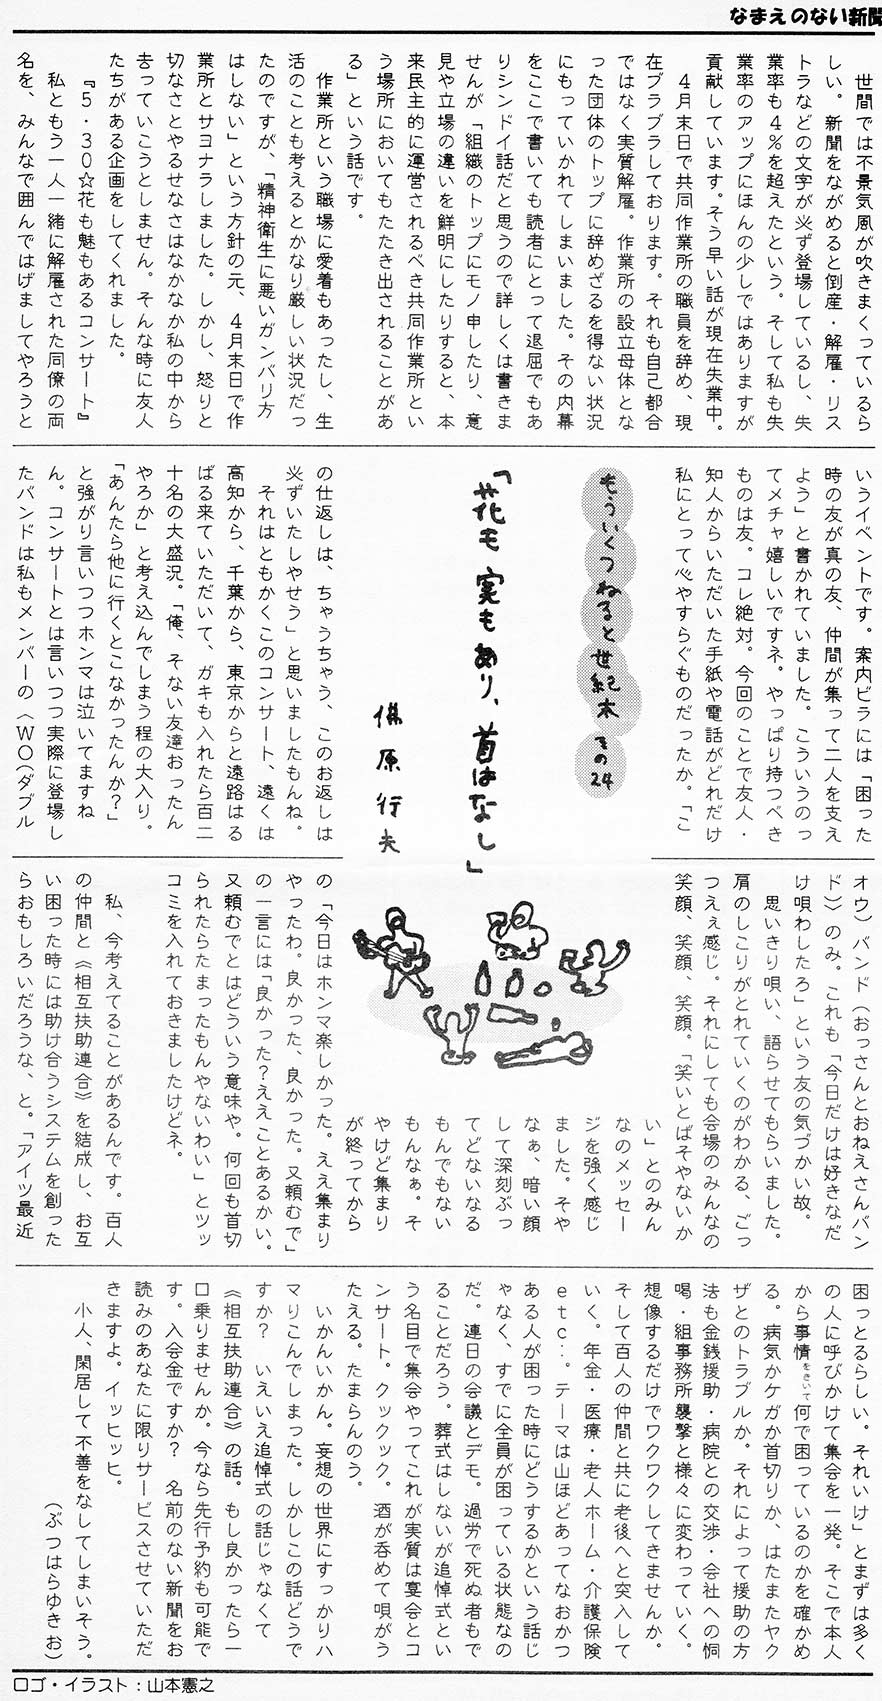 なまえのない新聞
　世間では不景気風が吹きまくっているら
しい。新聞をながめると倒産・解雇・リス
トラなどの文字が必ず登場しているし、失
業率も４％を超えたという。そして私も失
業率のアップにほんの少しではありますが
貢献しています。そう早い話が現在失業中。
　４月末日で共同作業所の職員を辞め、現
在ブラブラしております。それも自己都合
ではなく実質解雇。作業所の設立母体とな
った団体のトップに辞めざるを得ない状況
にもっていかれてしまいました。その内幕
をここで書いても読者にとって退屈でもあ
りシンドイ話だと思うので詳しくは書きま
せんが「組織のトップにモノ申したり、意
見や立場の違いを鮮明にしたりすると、本
来民主的に運営されるべき共同作業所とい
う場所においてもたたき出されることがあ
る」という話です。
　作業所という職場に愛着もあったし、生
活のことも考えるとかなり厳しい状況だっ
たのですが、「精神衛生に悪いガンバリ方
はしない」という方針の元、４月末日で作
業所とサヨナラしました。しかし、怒りと
切なさとやるせなさはなかなか私の中から
去っていこうとしません。そんな時に友人
たちがある企画をしてくれました。
　『５・３０☆花も魅もあるコンサート』
　私ともう一人一緒に解雇された同僚の両
名を、みんなで囲んではげましてやろうと
いうイベントです。案内ビラには「困った
時の友が真の友、仲間が集って二人を支え
よう」と書かれていました。こういうのっ
てメチャ嬉しいですネ。やっぱり持つべき
ものは友。コレ絶対。今回のことで友人・
知人からいただいた手紙や電話がどれだけ
私にとって心やすらぐものだったか。「こ
もういくつねると世紀本 その24
「花も実もあり、首はなし」
佛原行夫
の仕返しは、ちゃうちゃう、このお返しは
必ずいたしやせう」と思いましたもんね。
　それはともかくこのコンサート、遠くは
高知から、千葉から、東京からと遠路はる
ばる来ていただいて、ガキも入れたら百二
十名の大盛況。「俺、そない友達おったん
やろか」と考え込んでしまう程の大入り。
「あんたら他に行くとこなかったんか？」
と強がり言いつつホンマは泣いてますね
ん。コンサートとは言いつつ実際に登場し
たバンドは私もメンバーの〈ＷＯ（ダブル
オウ）バンド（おっさんとおねえさんバン
ド）〉のみ。これも「今日だけは好きなだ
け唄わしたろ」という友の気づかい故。
　思いきり唄い、語らせてもらいました。
肩のしこりがとれていくのがわかる、ごっ
つええ感じ。それにしても会場のみんなの
笑顔、笑顔、笑顔。「笑いとばそやないか
い」とのみん
なのメッセー
ジを強く感じ
ました。そや
なぁ、暗い顔
して深刻ぶっ
てどないなる
もんでもない
もんなぁ。そ
やけど集まり
が終ってから
の「今日はホンマ楽しかった。ええ集まり
やったわ。良かった、良かった。又頼むで」
の一言には「良かった？ええことあるかい。
又頼むでとはどういう意味や。何回も首切
られたらたまったもんやないわい」とツッ
コミを入れておきましたけどネ。
　私、今考えてることがあるんです。百人
の仲間と《相互扶助連合》を結成し、お互
い困った時には助け合うシステムを創った
らおもしろいだろうな、と。「アイツ最近
困っとるらしい。それいけ」とまずは多く
の人に呼びかけて集会を一発。そこで本人
から事情をきいて何で困っているのかを確かめ
る。病気かケガか首切りか、はたまたヤク
ザとのトラブルか。それによって援助の方
法も金銭援助・病院との交渉・会社への恫
喝・組事務所襲撃と様々に変わっていく。
想像するだけでワクワクしてきませんか。
そして百人の仲間と共に老後へと突入して
いく。年金・医療・老人ホーム・介護保険
ｅｔｃ…。テーマは山ほどあってなおかつ
ある人が困った時にどうするかという話じ
ゃなく、すでに全員が困っている状態なの
だ。連日の会議とデモ。過労で死ぬ者もで
ることだろう。葬式はしないが追悼式とい
う名目で集会やってこれが実質は宴会とコ
ンサート。クックック。酒が呑めて唄がう
たえる。たまらんのう。
　いかんいかん。妄想の世界にすっかりハ
マりこんでしまった。しかしこの話どうで
すか？　いえいえ追悼式の話じゃなくて
《相互扶助連合》の話。もし良かったら一
口乗りませんか。今なら先行予約も可能で
す。入会金ですか？　名前のない新聞をお
読みのあなたに限りサービスさせていただ
きますよ。イッヒッヒ。
　小人、閑居して不善をなしてしまいそう。
（ぶつはらゆきお）
ロゴ・イラスト：山本憲之